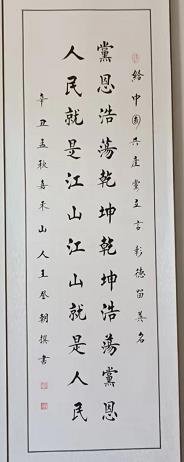 給中國共產黨立言彰德留美名
黨恩浩蕩乾坤乾坤浩蕩黨恩
人民就是江山江山就是人民
辛丑孟秋喜禾山人王登朝撰書